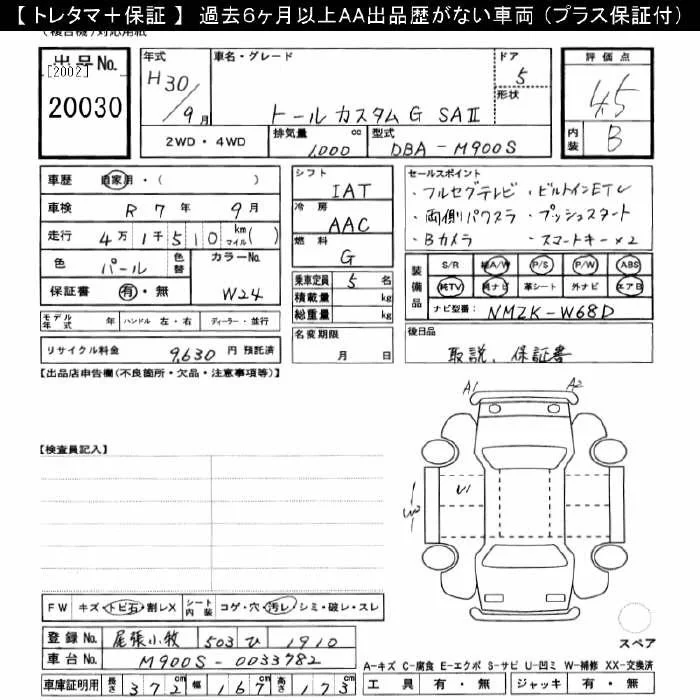 【 トレタマ＋保証 】 過去6ヶ月以上AA出品歴がない車両 (プラス保証付)
(複合機) 対応用紙
出品No.
[2002]
20030
年式 H30/9月
車名・グレード トール カスタム G SAⅡ
ドア 5
形状
2WD・4WD
排気量 1,000 cc
型式 DBA - M900S
評価点 4.5
内装 B
車歴 自家用・( )
車検 R 7 年 9 月
走行 4万1千510 km マイル( )
色 パール 色替 カラーNo. W24
保証書 有・無
モデル年式 年 ハンドル 左・右 ディーラー・並行
リサイクル料金 9,630 円 預託済
シフト IAT
冷房 AAC
燃料 G
乗車定員 5 名
積載量 kg
総重量 kg
名変期限 月 日
セールスポイント
・フルセグテレビ ・ビルトインETC
・両側パワスラ ・プッシュスタート
・Bカメラ ・スマートキー×2
装備品
S/R 純A/W P/S P/W ABS
純TV 純ナビ 革シート 外ナビ エアB
ナビ型番: NMZK-W68D
後日品
取説、保証書
【出品店申告欄(不良箇所・欠品・注意事項等)】
【検査員記入】
A1 A2
U1
FW キズ・トビ石・割レX シート内装 コゲ・穴・汚レ・シミ・破レ・スレ
登録No. 尾張小牧 503 ひ 1910
車台No. M900S-0033782
車庫証明用 長さ 372cm 幅 167cm 高さ 173cm
スペア
A-キズ C-腐食 E-エクボ S-サビ U-凹ミ W-補修 XX-交換済
工具 有・無 ジャッキ 有・無